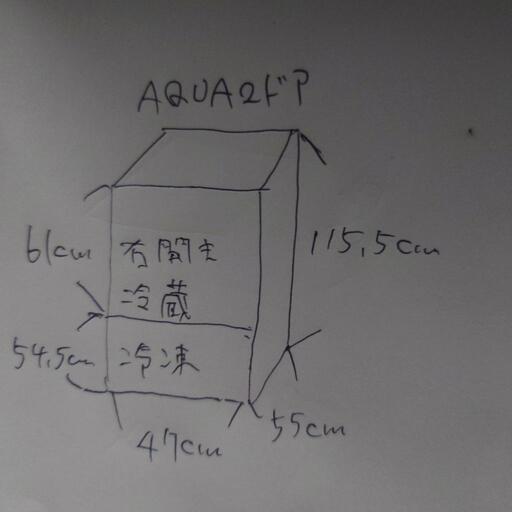 AQUA2ドア
61cm
右開き
冷蔵
115,5cm
54,5cm
冷凍
47cm
55cm